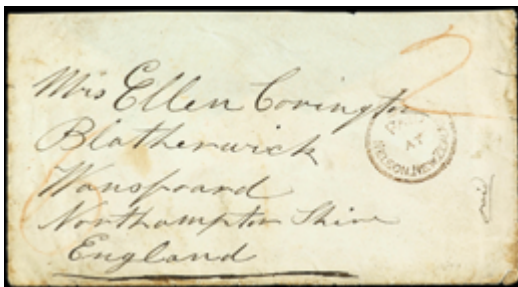 2
Mrs Ellen Covington
Blatherwick
Wansfoard
Northampton Shire
England
PAID
AT
NELSON.NEW ZEALAND